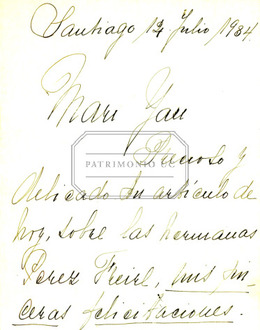 Santiago 14 Julio 1934.
Mari Yan
Gracioso y
PATRIMONIO UC
delicado su artículo de
hoy, sobre las hermanas
Perez Freire, mis sin-
ceras felicitaciones.